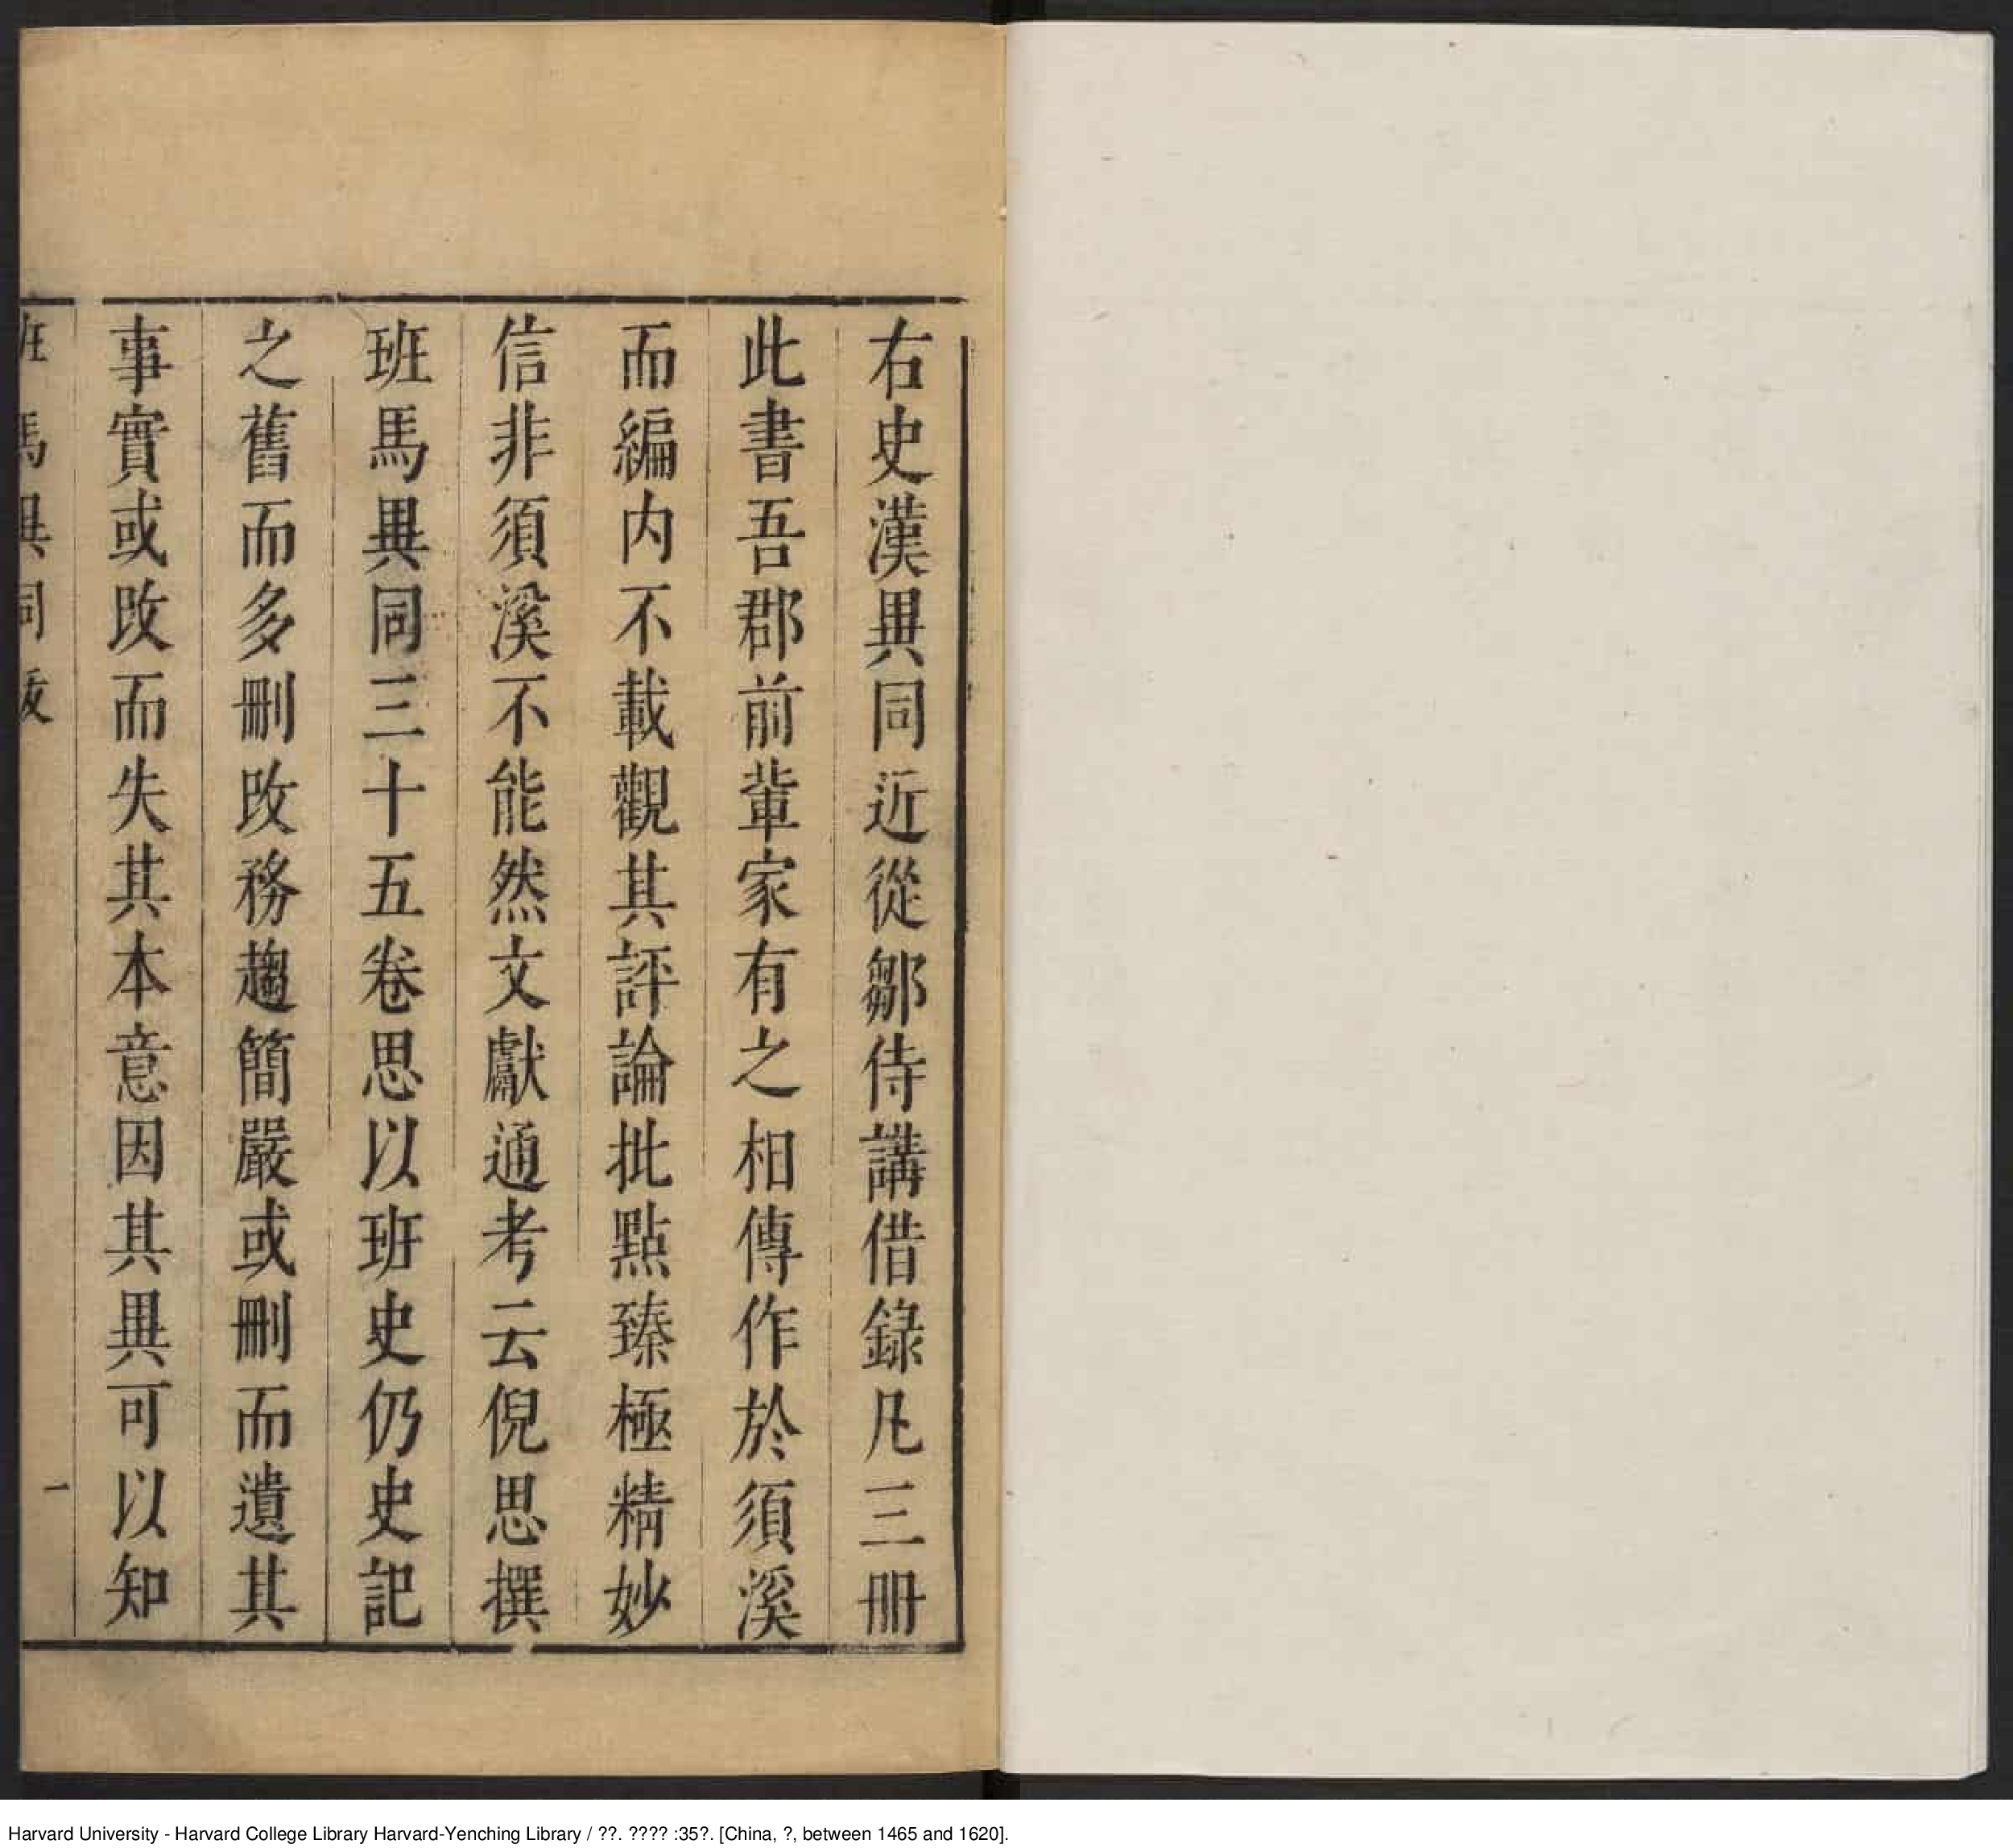 右史漢異同近從鄒侍講借錄凡三冊
此書吾郡前輩家有之相傳作於須溪
而編内不載觀其評論批點臻極精妙
信非須溪不能然文獻通考云倪思撰
班馬異同三十五卷思以班史仍史記
之舊而多刪改務趨簡嚴或刪而遺其
事實或改而失其本意因其異可以知
班馬異同跋
一
Harvard University - Harvard College Library Harvard-Yenching Library / ??. ???? :35?. [China, ?, between 1465 and 1620].